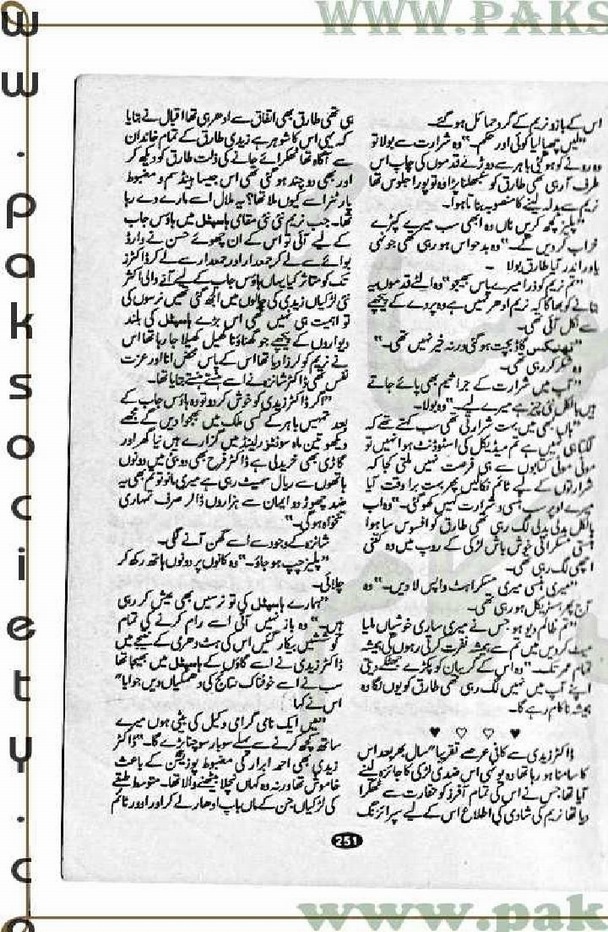 WWW.PAKS
ww.paksociety.c
اس کے بازو نریم کے گرد حمائل ہو گئے۔
"لیں چھپا لیا کوئی اور حکم۔" وہ شرارت سے بولا تو
وہ رونے کو ہو گئی باہر سے دوڑتے قدموں کی چاپ اس
طرف آ رہی تھی طارق کو سنبھلنا پڑا وہ تو پورا جلوس تھا
نریم سے بدلہ لینے کا منصوبہ بناتا ہوا۔
"پلیز کچھ کریں ناں وہ ابھی سب میرے کپڑے
خراب کر دیں گے۔" وہ بدحواس ہو رہی تھی جونہی
یاور اندر آیا طارق بولا
"تم نریم کو ذرا میرے پاس بھیجو" وہ الٹے قدموں یہ
بتانے کو بھاگا کہ نریم ادھر نہیں ہے وہ پردے کے پیچھے
سے نکل آئی تھی۔
"تھینکس گاڈ بچت ہو گئی ورنہ خیر نہیں تھی۔"
وہ شکر کر رہی تھی۔
"آپ میں شرارت کے جراثیم بھی پائے جاتے
ہیں بالکل نئی چیز ہے میرے لیے۔" وہ بولا۔
"ہاں بھی میں بہت شرارتی تھی سب کہتے تھے کہ
لگتا ہی نہیں ہے تم میڈیکل کی اسٹوڈنٹ ہو انہیں تو
موٹی موٹی کتابوں سے ہی فرصت نہیں ملتی کجا کہ
شرارتوں کے لیے ٹائم نکالیں پھر بہت برا وقت آیا
میرے اوپر سب ہنسی و شرارت میں کھو گئی۔" وہ اب
بالکل بدلی بدلی لگ رہی تھی طارق کو افسوس سا ہوا
ہنستی مسکراتی خوش باش لڑکی کے روپ میں وہ کتنی
اچھی لگ رہی تھی۔
"میری ہنسی میری مسکراہٹ واپس لا دیں۔" وہ
آج پھر ہسٹریکل ہو رہی تھی۔
"تم ظالم دیو ہو جس نے میری ساری خوشیاں ملیا
میٹ کر دیں میں تم سے ہمیشہ نفرت کرتی رہوں گی ہمیشہ
تمام عمر تک۔" وہ اس کے گریبان کو پکڑے جھٹکے دیتی
اپنے آپ میں نہیں لگ رہی تھی طارق کو یوں لگا وہ
ہمیشہ ناکام رہے گا۔
♥ ♡ ♡ ♥
ڈاکٹر زیدی سے کافی عرصے تقریباً سال بھر بعد اس
کا سامنا ہو رہا تھا وہ یونہی اس ضدی لڑکی کا جائزہ لینے
آیا تھا جس نے اس کی تمام آفرز کو حقارت سے ٹھکرا
دیا تھا نریم کی شادی کی اطلاع اس کے لیے سرپرائزنگ
ہی تھی طارق بھی اتفاق سے ادھر ہی تھا اقبال نے بتایا
کہ یہی اس کا شوہر ہے زیدی طارق کے تمام خاندان
سے آگاہ تھا ٹھکرائے جانے کی ذلت طارق کو دیکھ کر
اور بھی دو چند ہو گئی تھی اس جیسا ہینڈسم و مضبوط
پارٹنر اسے کیوں ملا تھا؟ یہ ملال اسے مارے دے رہا
تھا۔ جب نریم نئی نئی مقامی ہاسپٹل میں ہاؤس جاب
کے لیے آئی تو اس کے ان چھوئے حسن نے وارڈ
بوائے سے لے کر جمعدار اور جمعدار سے لے کر ڈاکٹرز
تک کو متاثر کیا یہاں ہاؤس جاب کے لیے آنے والی اکثر
نئی لڑکیاں زیدی کی چالوں میں الجھ گئی تھیں نرسوں کی
تو اہمیت ہی نہیں تھی اس بڑے ہاسپٹل کی بلند
دیواروں کے پیچھے جو گھناؤنا کھیل کھیلا جا رہا تھا اس
نے نریم کو لرزا دیا تھا اس کے پاس محض انا اور عزت
نفس تھی ڈاکٹر شانزہ نے اسے ہنستے ہنستے بتایا تھا۔
"اگر ڈاکٹر زیدی کو خوش کر دو تو وہ ہاؤس جاب کے
بعد تمہیں باہر کے کسی ملک میں بھجوا دیں گے مجھے
دیکھو تین ماہ سوئٹزرلینڈ میں گزارے ہیں نیا گھر اور
گاڑی بھی خریدلی ہے ڈاکٹر فرح بھی دوبئی میں دونوں
ہاتھوں سے ریال سمیٹ رہی ہے میری مانو تو تم بھی یہ
ضد چھوڑ دو ایمان سے ہزاروں ڈالر صرف تمہاری
تنخواہ ہو گی۔"
شانزہ کے وجود سے اسے گھن آنے لگی۔
"پلیز چپ ہو جاؤ۔" وہ کانوں پر دونوں ہاتھ رکھ کر
چلائی۔
"ہمارے ہاسپٹل کی تو نرسیں بھی عیش کر رہی
ہیں۔" وہ باز نہیں آئی اسے رام کرنے کی تمام
کوششیں بیکار گئیں اس کی ہٹ دھرمی کے نتیجے میں
ڈاکٹر زیدی نے اسے گاؤں کے ہاسپٹل میں بھیجا تھا
سب نے اسے خوفناک نتائج کی دھمکیاں دیں جواباً
اس نے کہا
"میں ایک نامی گرامی وکیل کی بیٹی ہوں میرے
ساتھ کچھ کرنے سے پہلے سو بار سوچنا پڑے گا۔" ڈاکٹر
زیدی بھی احمد ابرار کی مضبوط پوزیشن کے باعث
خاموش تھا ورنہ وہ کہاں نچلا بیٹھنے والا تھا۔ متوسط طبقے
کی لڑکیاں جن کے ماں باپ ادھار لے کر اور اوور ٹائم
251
www.pak